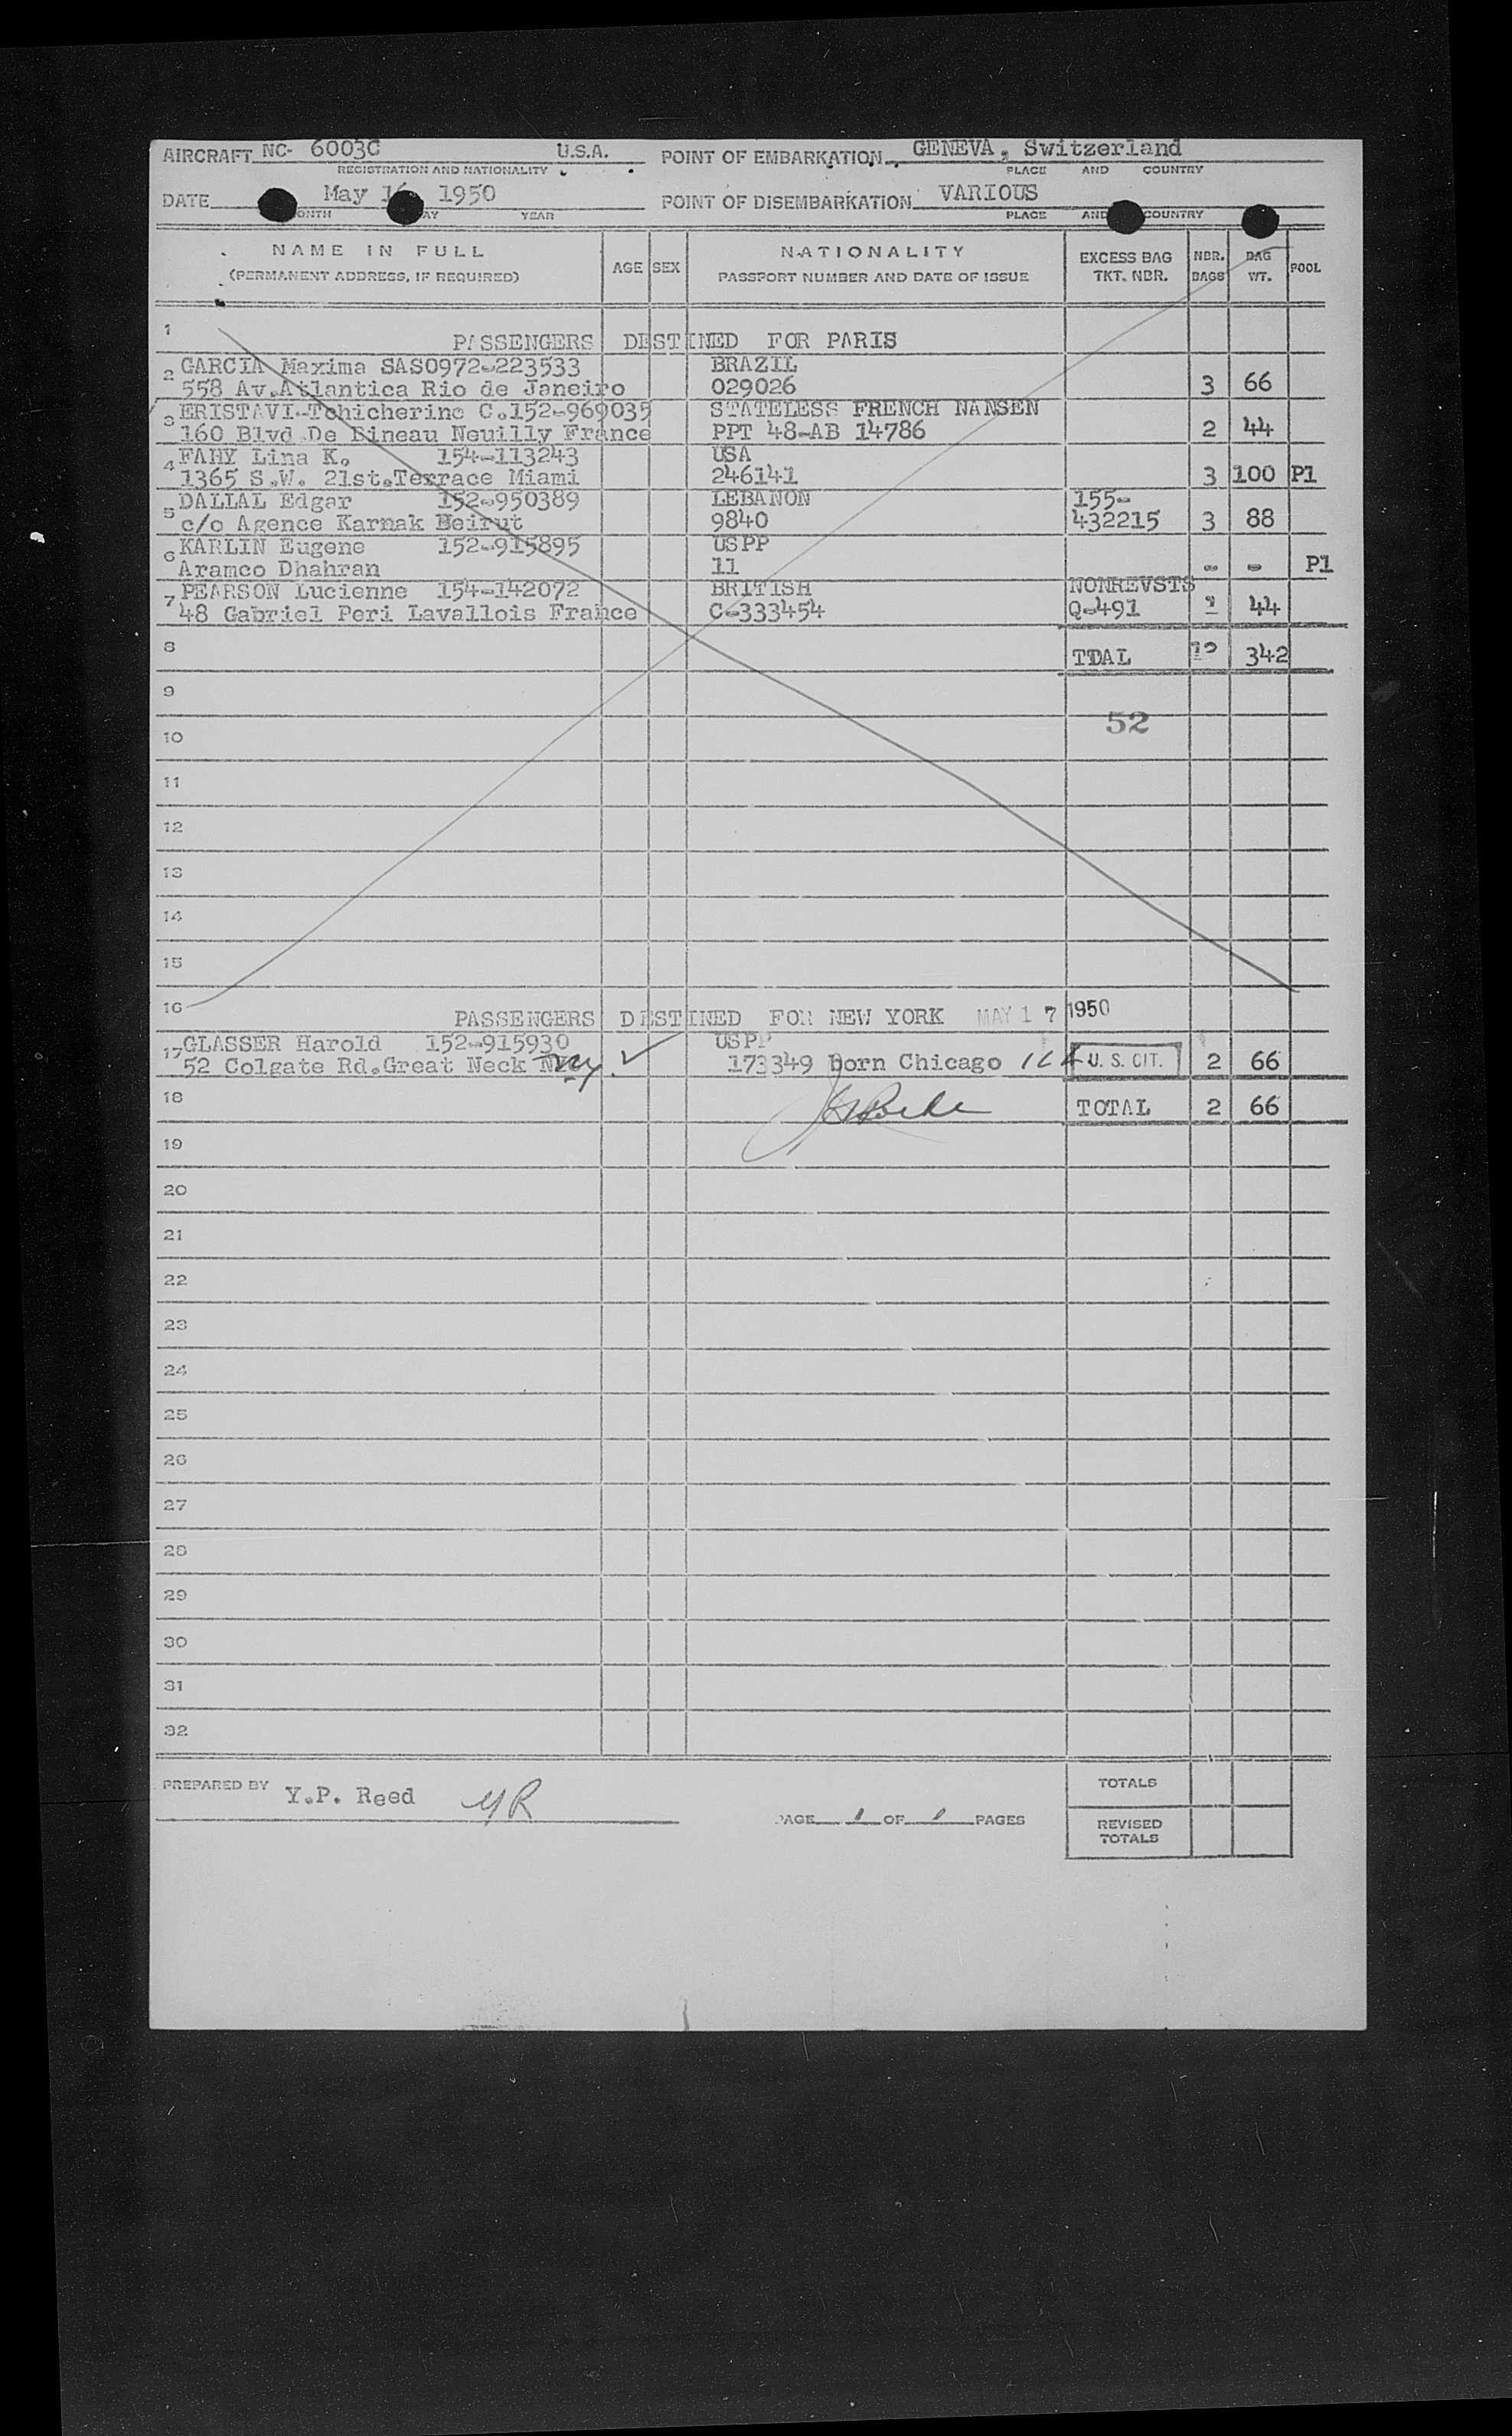 AIRCRAFT NC- 6003C U.S.A. POINT OF EMBARKATION GENEVA, Switzerland
REGISTRATION AND NATIONALITY PLACE AND COUNTRY
DATE May 16 1950 POINT OF DISEMBARKATION VARIOUS
YEAR PLACE AND COUNTRY
NAME IN FULL
(PERMANENT ADDRESS, IF REQUIRED)
AGE SEX
NATIONALITY
PASSPORT NUMBER AND DATE OF ISSUE
EXCESS BAG
TKT. NBR.
NBR.
BAGS
BAG
WT.
POOL
1
PASSENGERS DESTINED FOR PARIS
2 GARCIA Maxima SAS0972-223533 BRAZIL
558 Av.Atlantica Rio de Janeiro 029026 3 66
3 ERISTAVI-Tchicherine C.152-969035 STATELESS FRENCH NANSEN
160 Blvd De Bineau Neuilly France PPT 48-AB 14786 2 44
4 FAHY Lina K. 154-113243 USA
1365 S.W. 21st.Terrace Miami 246141 3 100 P1
5 DALLAL Edgar 152-950389 LEBANON 155-
c/o Agence Karnak Beirut 9840 432215 3 88
6 KARLIN Eugene 152-915895 USPP
Aramco Dhahran 11 - - P1
7 PEARSON Lucienne 154-142072 BRITISH NONREVSTS
48 Gabriel Peri Lavallois France C-333454 Q-491 44
8 342
9
52
10
11
12
13
14
15
16
PASSENGERS DESTINED FOR NEW YORK MAY 17 1950
17 GLASSER Harold 152-915930 USPP
52 Colgate Rd.Great Neck NY ny ✓ 173349 born Chicago U. S. CIT. 2 66
18 TOTAL 2 66
19
20
21
22
23
24
25
26
27
28
29
30
31
32
PREPARED BY Y.P. Reed YR
PAGE 1 OF 1 PAGES
TOTALS
REVISED
TOTALS